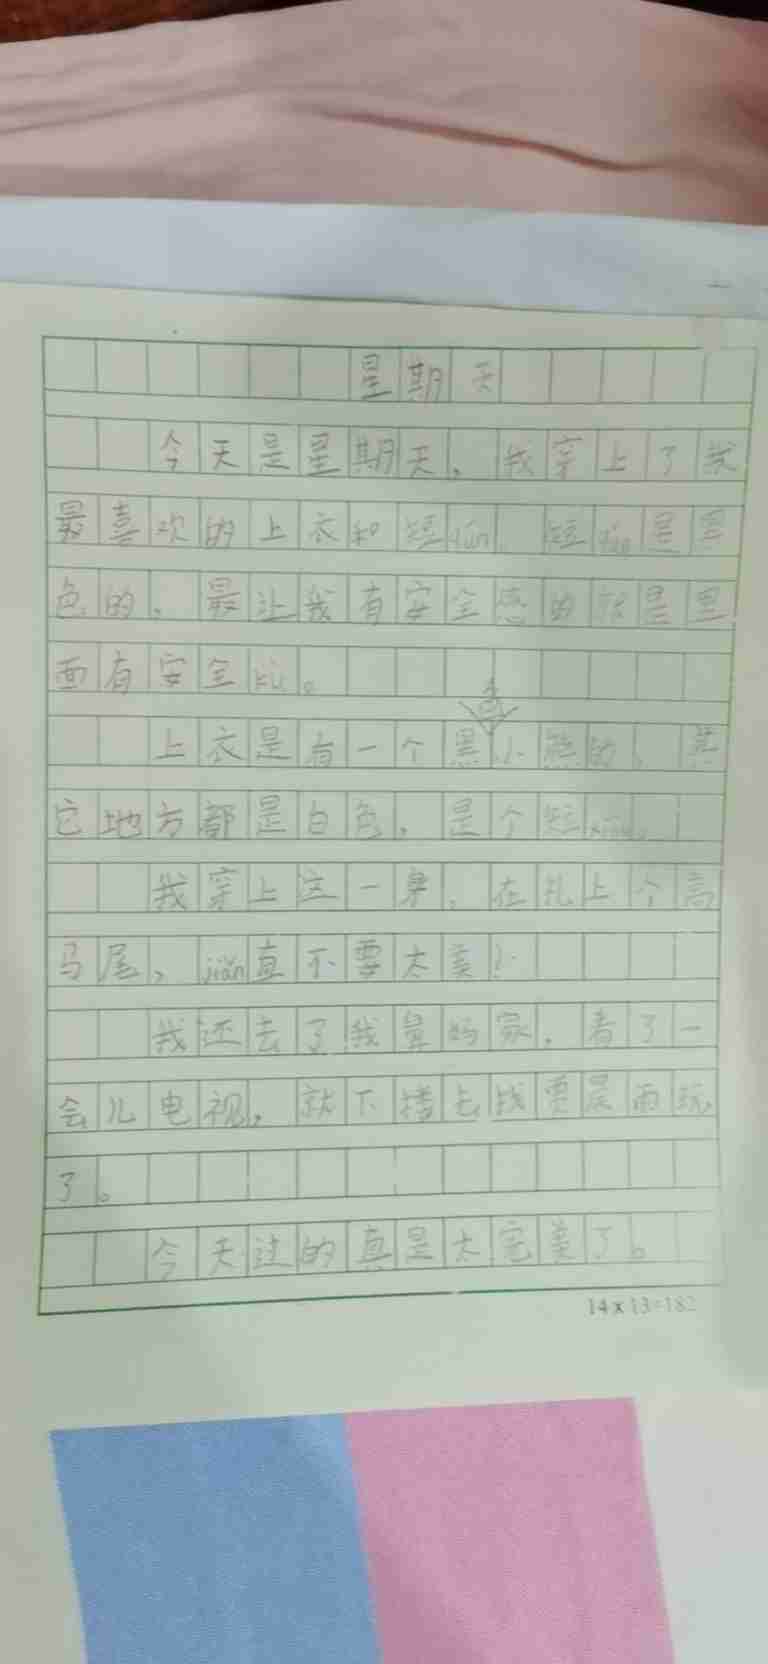 星期天
今天是星期天，我穿上了我
最喜欢的上衣和短qún，短qún是黑
色的，最让我有安全感的就是里
面有安全kù。
色
上衣是有一个黑小熊的，其
它地方都是白色，是个短xiù。
我穿上这一身，在扎上个高
马尾，jiǎn直不要太美！
我还去了我舅妈家，看了一
会儿电视，就下楼去找贾晨雨玩
了。
今天过的真是太完美了。
14×13=182